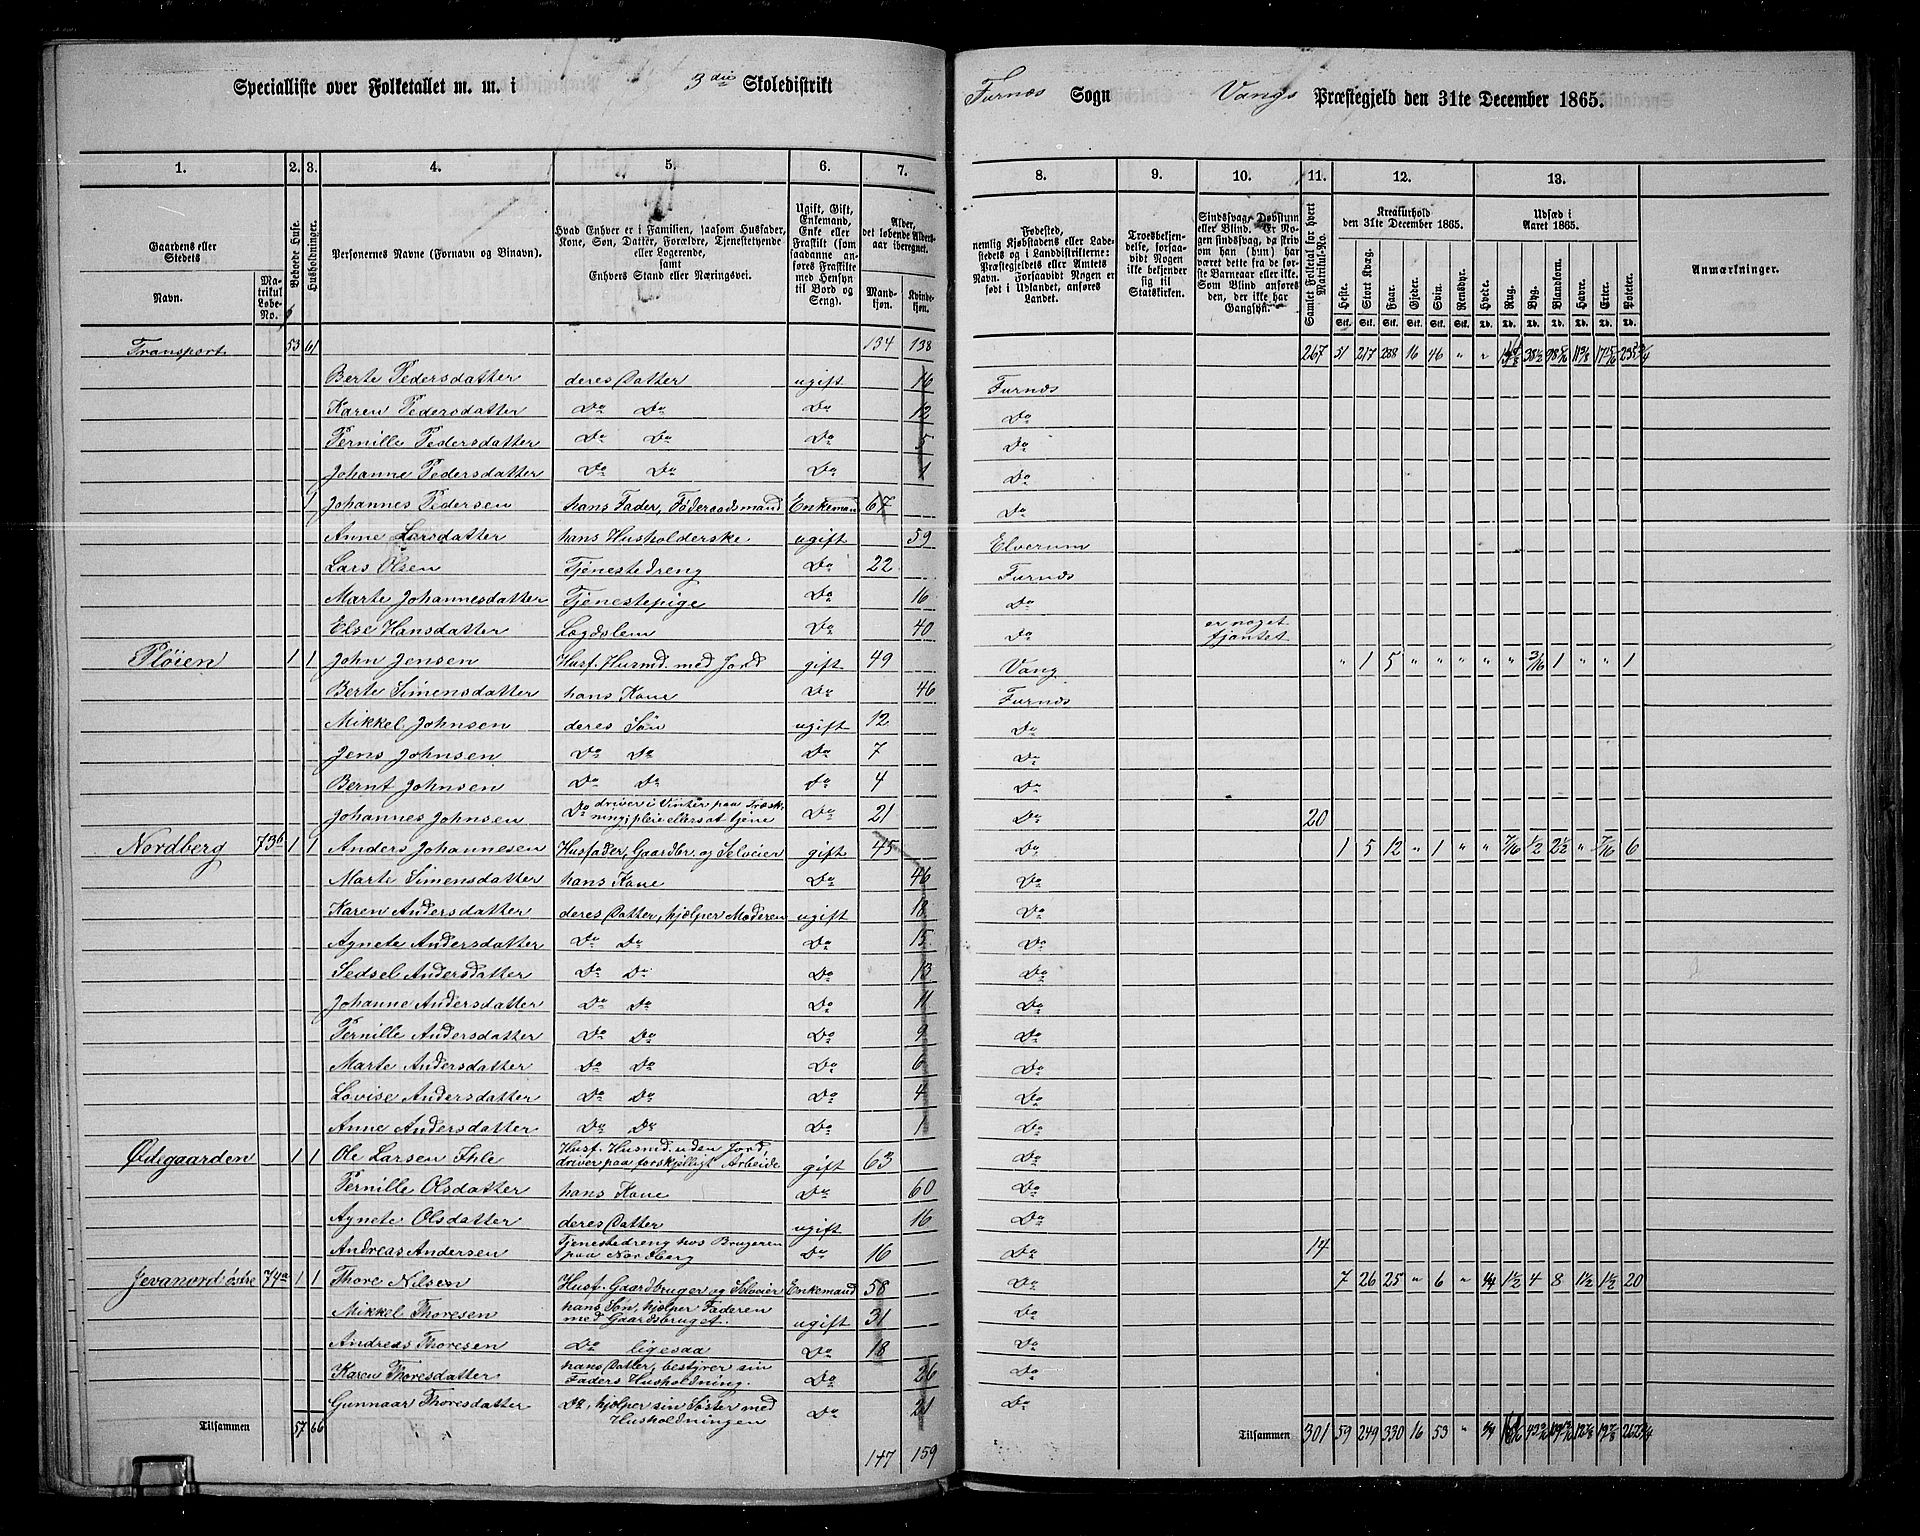 Specialliste over Folketallet m. m. i 3die Skoledistrikt
Furnæs Sogn Vangs Præstegjeld den 31te December 1865.
1. 2. 3. 4. 5. 6. 7. 8. 9. 10. 11. 12. 13.
Gaardens eller Stedets Navn. Matrikul Løbe-No. Beboede Huse. Husholdninger. Personernes Navne (Fornavn og Binavn).
Hvad Enhver er i Familien, saasom Husfader, Kone, Søn, Datter, Forældre, Tjenestetyende eller Logerende, samt Enhvers Stand eller Næringsvei.
Ugift, Gift, Enkemand, Enke eller Fraskilt (som saadanne anføres Fraskilte med Hensyn til Bord og Seng).
Alder, det løbende Alders-aar iberegnet. Mand-kjøn. Kvinde-kjøn.
Fødested, nemlig Kjøbstadens eller Ladestedets og i Landdistrikterne: Præstegjeldets eller Amtets Navn. Forsaavidt Nogen er født i Udlandet, anføres Landet.
Troesbekjendelse, forsaavidt Nogen ikke bekjender sig til Statskirken.
Sindssvag, Døvstum eller Blind. Er Nogen sindssvag, da skrives om han (hun) har været dette fra de første Barneaar eller ikke. Som Blind anføres den, der ikke har Gangsyn.
Samlet Folketal for hvert Matrikul-No.
Kreaturhold den 31te December 1865. Heste. Stort Kvæg. Faar. Gjeder. Svin. Rensdyr.
Udsæd i Aaret 1865. Hvede. Rug. Byg. Blandkorn. Havre. Erter. Poteter.
Anmærkninger.
Transport 53 61 134 138 267 51 217 288 16 46 "
Berte Pedersdatter deres Datter ugift 16 Furnæs
Karen Pedersdatter Do Do Do 12 Do
Pernille Pedersdatter Do Do Do 5 Do
Johanne Pedersdatter Do Do Do 1 Do
1 Johannes Pedersen hans Fader, Føderaadsmand Enkemand 67 Do
Anne Larsdatter hans Husholderske ugift 59 Elverum
Lars Olsen Tjenestedreng Do 22 Furnæs
Marte Johannesdatter Tjenestepige Do 16 Do
Else Hansdatter Lægdslem Do 40 Do er noget fjantet
Pløien 1 1 John Jensen Husf. Husmd. med Jord gift 49 Vang " 1 5 " " " " " 3/16 1 " " 1
Berte Simensdatter hans Kone Do 46 Furnæs
Mikkel Johnsen deres Søn ugift 12 Do
Jens Johnsen Do Do Do 7 Do
Bernt Johnsen Do Do Do 4 Do
Johannes Johnsen Do driver i Vinter paa Træskning, pleie ellers at tjene Do 21 Do 20
Nordberg 73b 1 1 Anders Johannesen Husfader, Gaardbr. og Selveier gift 45 Do 1 5 12 " 1 " " 7/16 1/2 2 1/2 " 7/16 6
Marte Simensdatter hans Kone Do 46 Do
Karen Andersdatter deres Datter, hjælper Moderen ugift 18 Do
Agnete Andersdatter Do Do Do 15 Do
Sedsel Andersdatter Do Do Do 13 Do
Johanne Andersdatter Do Do Do 11 Do
Pernille Andersdatter Do Do Do 9 Do
Marte Andersdatter Do Do Do 6 Do
Lovise Andersdatter Do Do Do 4 Do
Anne Andersdatter Do Do Do 1 Do
Ødegaarden 1 1 Ole Larsen Ihle Husf. Husmd. uden Jord, driver paa forskjelligt Arbeide gift 63 Do
Pernille Olsdatter hans Kone Do 60 Do
Agnete Olsdatter deres Datter ugift 16 Do
Andreas Andersen Tjenestedreng hos Brugeren paa Nordberg Do 16 Do 14
Jevanord østre 74a 1 1 Thore Nilsen Husf. Gaardbruger og Selveier Enkemand 58 Do 7 26 25 " 6 " 1/4 1 1/2 4 8 1 1/2 1 1/2 20
Mikkel Thoresen hans Søn, hjælper Faderen med Gaardsbruget. ugift 31 Do
Andreas Thoresen Do ligesaa Do 18 Do
Karen Thoresdatter hans Datter, bestyrer sin Faders Husholdning. Do 26 Do
Gunnaar Thoresdatter Do, hjælper sin Søster med Husholdningen Do 21 Do
Tilsammen 57 66 147 159 Tilsammen 301 59 249 330 16 53 "